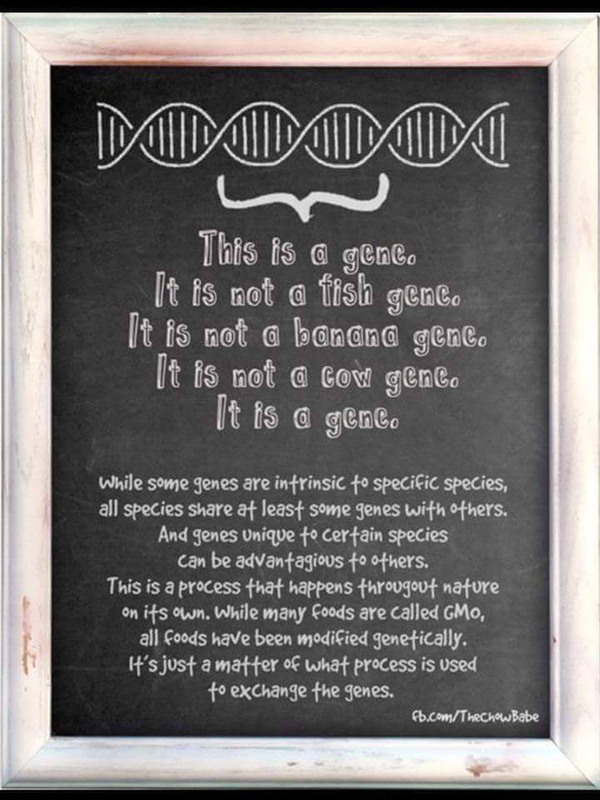 This is a gene.
It is not a fish gene.
It is not a banana gene.
It is not a cow gene.
It is a gene.
While some genes are intrinsic to specific species,
all species share at least some genes with others.
And genes unique to certain species
can be advantagious to others.
This is a process that happens througout nature
on its own. While many foods are called GMO,
all foods have been modified genetically.
It's just a matter of what process is used
to exchange the genes.
fb.com/TheChowBabe